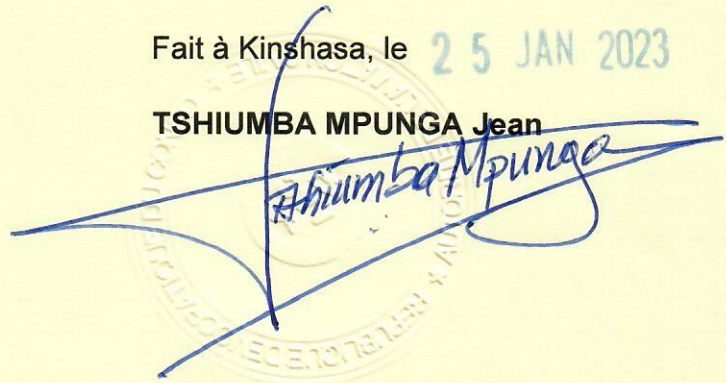 Fait à Kinshasa, le 25 JAN 2023
TSHIUMBA MPUNGA Jean
Tshiumba Mpunga